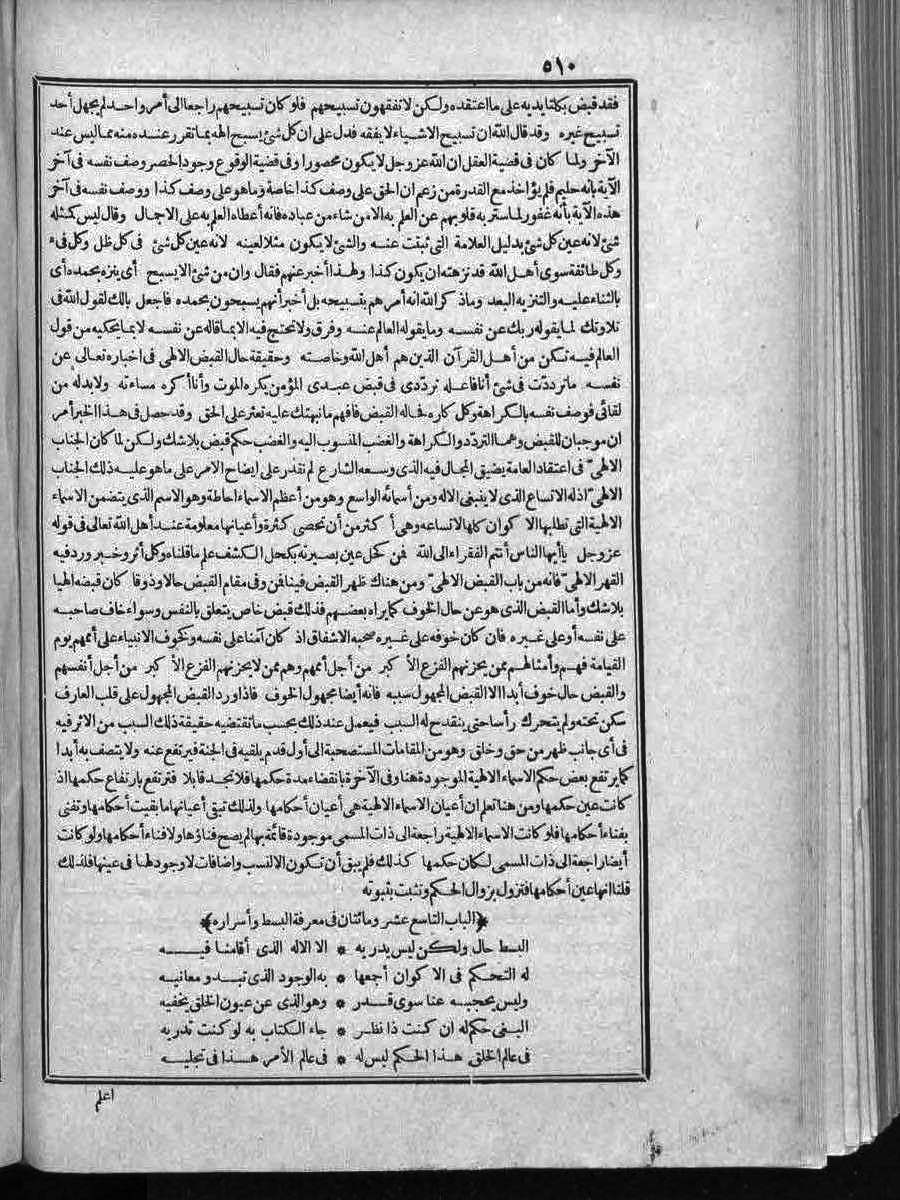 ٥١٠
فقد قبض بكلتا يديه على ما اعتقده ولكن لا تفقهون تسبيحهم فلو كان تسبيحهم راجعا الى أمر واحد لم يجهل أحد
تسبيح غيره وقد قال الله ان تسبيح الاشياء لا يفقه فدل على ان كل شئ يسبح الهه بما تقرر عنده منه مما ليس عند
الآخر ولما كان فى قضية العقل ان الله عز وجل لا يكون محصورا وفى قضية الوقوع وجود الحصر وصف نفسه فى آخر
الآية بانه حليم فلم يؤاخذ مع القدرة من زعم ان الحق على وصف كذا خاصة وما هو على وصف كذا ووصف نفسه فى آخر
هذه الآية بأنه غفور لما ستر به قلوبهم عن العلم به الا من شاء من عباده فانه أعطاه العلم به على الاجمال وقال ليس كمثله
شئ لانه عين كل شئ بدليل العلامة التى ثبتت عنه والشئ لا يكون مثلا لعينه لانه عين كل شئ فى كل ظل وكل فىء
وكل طائفة سوى أهل الله قد نزهته ان يكون كذا ولهذا أخبر عنهم فقال وان من شئ الا يسبح أى ينزه بحمده أى
بالثناء عليه والتنزيه البعد وما ذكر الله انه أمرهم بتسبيحه بل أخبر أنهم يسبحون بحمده فاجعل بالك لقول الله فى
تلاوتك لما يقوله ربك عن نفسه وما يقوله العالم عنه وفرق ولا تحتج فيه الا بما قاله عن نفسه لا بما يحكيه من قول
العالم فيه تكن من أهل القرآن الذين هم أهل الله وخاصته وحقيقة حال القبض الالهى فى اخباره تعالى عن
نفسه ما ترددت فى شئ أنا فاعله ترددى فى قبض عبدى المؤمن يكره الموت وأنا أكره مساءته ولا بد له من
لقائى فوصف نفسه بالكراهة وكل كاره فحاله القبض فافهم ما نبهتك عليه تعثر على الحق وقد حصل فى هذا الخبر أمر
ان موجبان للقبض وهما التردد والكراهة والغضب المنسوب اليه والغضب حكم قبض بلا شك ولكن لما كان الجناب
الالهى فى اعتقاد العامة يضيق المجال فيه الذى وسعه الشارع لم نقدر على ايضاح الامر على ما هو عليه ذلك الجناب
الالهى اذ له الاتساع الذى لا ينبغى الا له ومن أسمائه الواسع وهو من أعظم الاسماء احاطة وهو الاسم الذى يتضمن الاسماء
الالهية التى تطلبها الاكوان كلها لاتساعه وهى أكثر من أن تحصى كثرة وأعيانها معلومة عند أهل الله تعالى فى قوله
عز وجل يا أيها الناس أنتم الفقراء الى الله فمن كحل عين بصيرته بكحل الكشف علم ما قلناه وكل أثر وخبر ورد فيه
القهر الالهى فانه من باب القبض الالهى ومن هناك ظهر القبض فينا فمن وفى مقام القبض حالا وذوقا كان قبضه الهيا
بلا شك وأما القبض الذى هو عن حال الخوف كما يراه بعضهم فذلك قبض خاص يتعلق بالنفس وسواء خاف صاحبه
على نفسه أو على غيره فان كان خوفه على غيره صحبه الاشفاق اذ كان آمنا على نفسه وكخوف الانبياء على أممهم يوم
القيامة فهم وأمثالهم ممن يحزنهم الفزع الأكبر من أجل أممهم وهم ممن لا يحزنهم الفزع الأكبر من أجل أنفسهم
والقبض حال خوف أبدا الا القبض المجهول سببه فانه أيضا مجهول الخوف فاذا ورد القبض المجهول على قلب العارف
سكن تحته ولم يتحرك رأسا حتى ينقدح له السبب فيعمل عند ذلك بحسب ما تقتضيه حقيقة ذلك السبب من الاثر فيه
فى أى جانب ظهر من حق وخلق وهو من المقامات المستصحبة الى أول قدم يلقيه فى الجنة فيرتفع عنه ولا يتصف به أبدا
كما يرتفع بعض حكم الاسماء الالهية الموجودة هنا وفى الآخرة بانقضاء مدة حكمها فلا تجد قابلا فترتفع بارتفاع حكمها اذ
كانت عين حكمها ومن هنا تعلم ان أعيان الاسماء الالهية هى أعيان أحكامها ولذلك تبقى أعيانها ما بقيت أحكامها وتفنى
بفناء أحكامها فلو كانت الاسماء الالهية راجعة الى ذات المسمى موجودة قائمة بها لم يصح فناؤها ولا فناء أحكامها ولو كانت
أيضا راجعة الى ذات المسمى لكان حكمها كذلك فلم يبق أن تكون الا لنسب واضافات لا وجود لها فى عينها فلذلك
قلنا انها عين أحكامها فتزول بزوال الحكم وتثبت بثبوته
﴿الباب التاسع عشر ومائتان فى معرفة البسط وأسراره﴾
البسط حال ولكن ليس يدريه * الا الاله الذى أقامنا فيه
له التحكم فى الاكوان أجمعها * به الوجود الذى تبدو معانيه
وليس يحجبه عنا سوى قدر * وهو الذى عن عيون الخلق يخفيه
البغى حكم له ان كنت ذا نظر * جاء الكتاب به لو كنت تدريه
فى عالم الخلق هذا الحكم ليس له * فى عالم الأمر هذا فى تجليه
اعلم